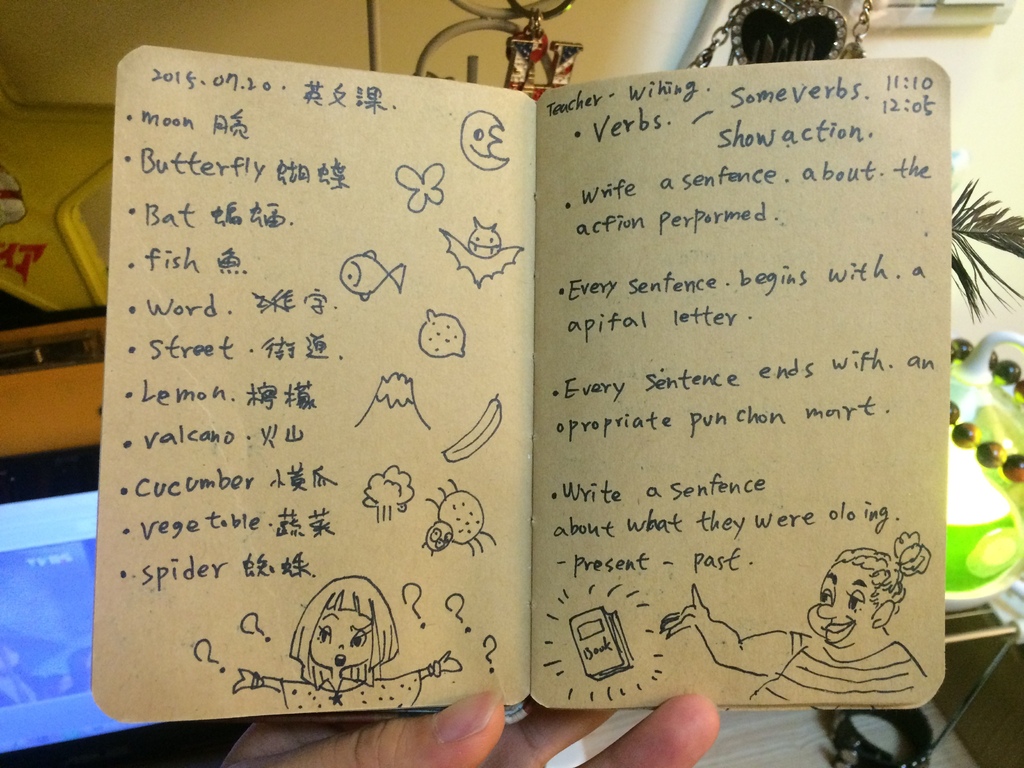 2015.07.20. 英文課.
• moon 月亮
• Butterfly 蝴蝶
• Bat 蝙蝠.
• fish 魚
• Word. 單字.
• street. 街道.
• Lemon. 檸檬
• valcano. 火山
• cucumber 小黃瓜
• vegetable. 蔬菜
• spider 蜘蛛.
? ? ? ? ?
Teacher - Wihing.
11:10
12:05
• Verbs. - Some verbs.
Show action.
• Write a sentence. about. the
action perpormed.
• Every sentence. begins with. a
apital letter.
• Every sentence ends with. an
opropriate punchon mart.
• Write a sentence
about what they were oloing.
- present - past.
Book